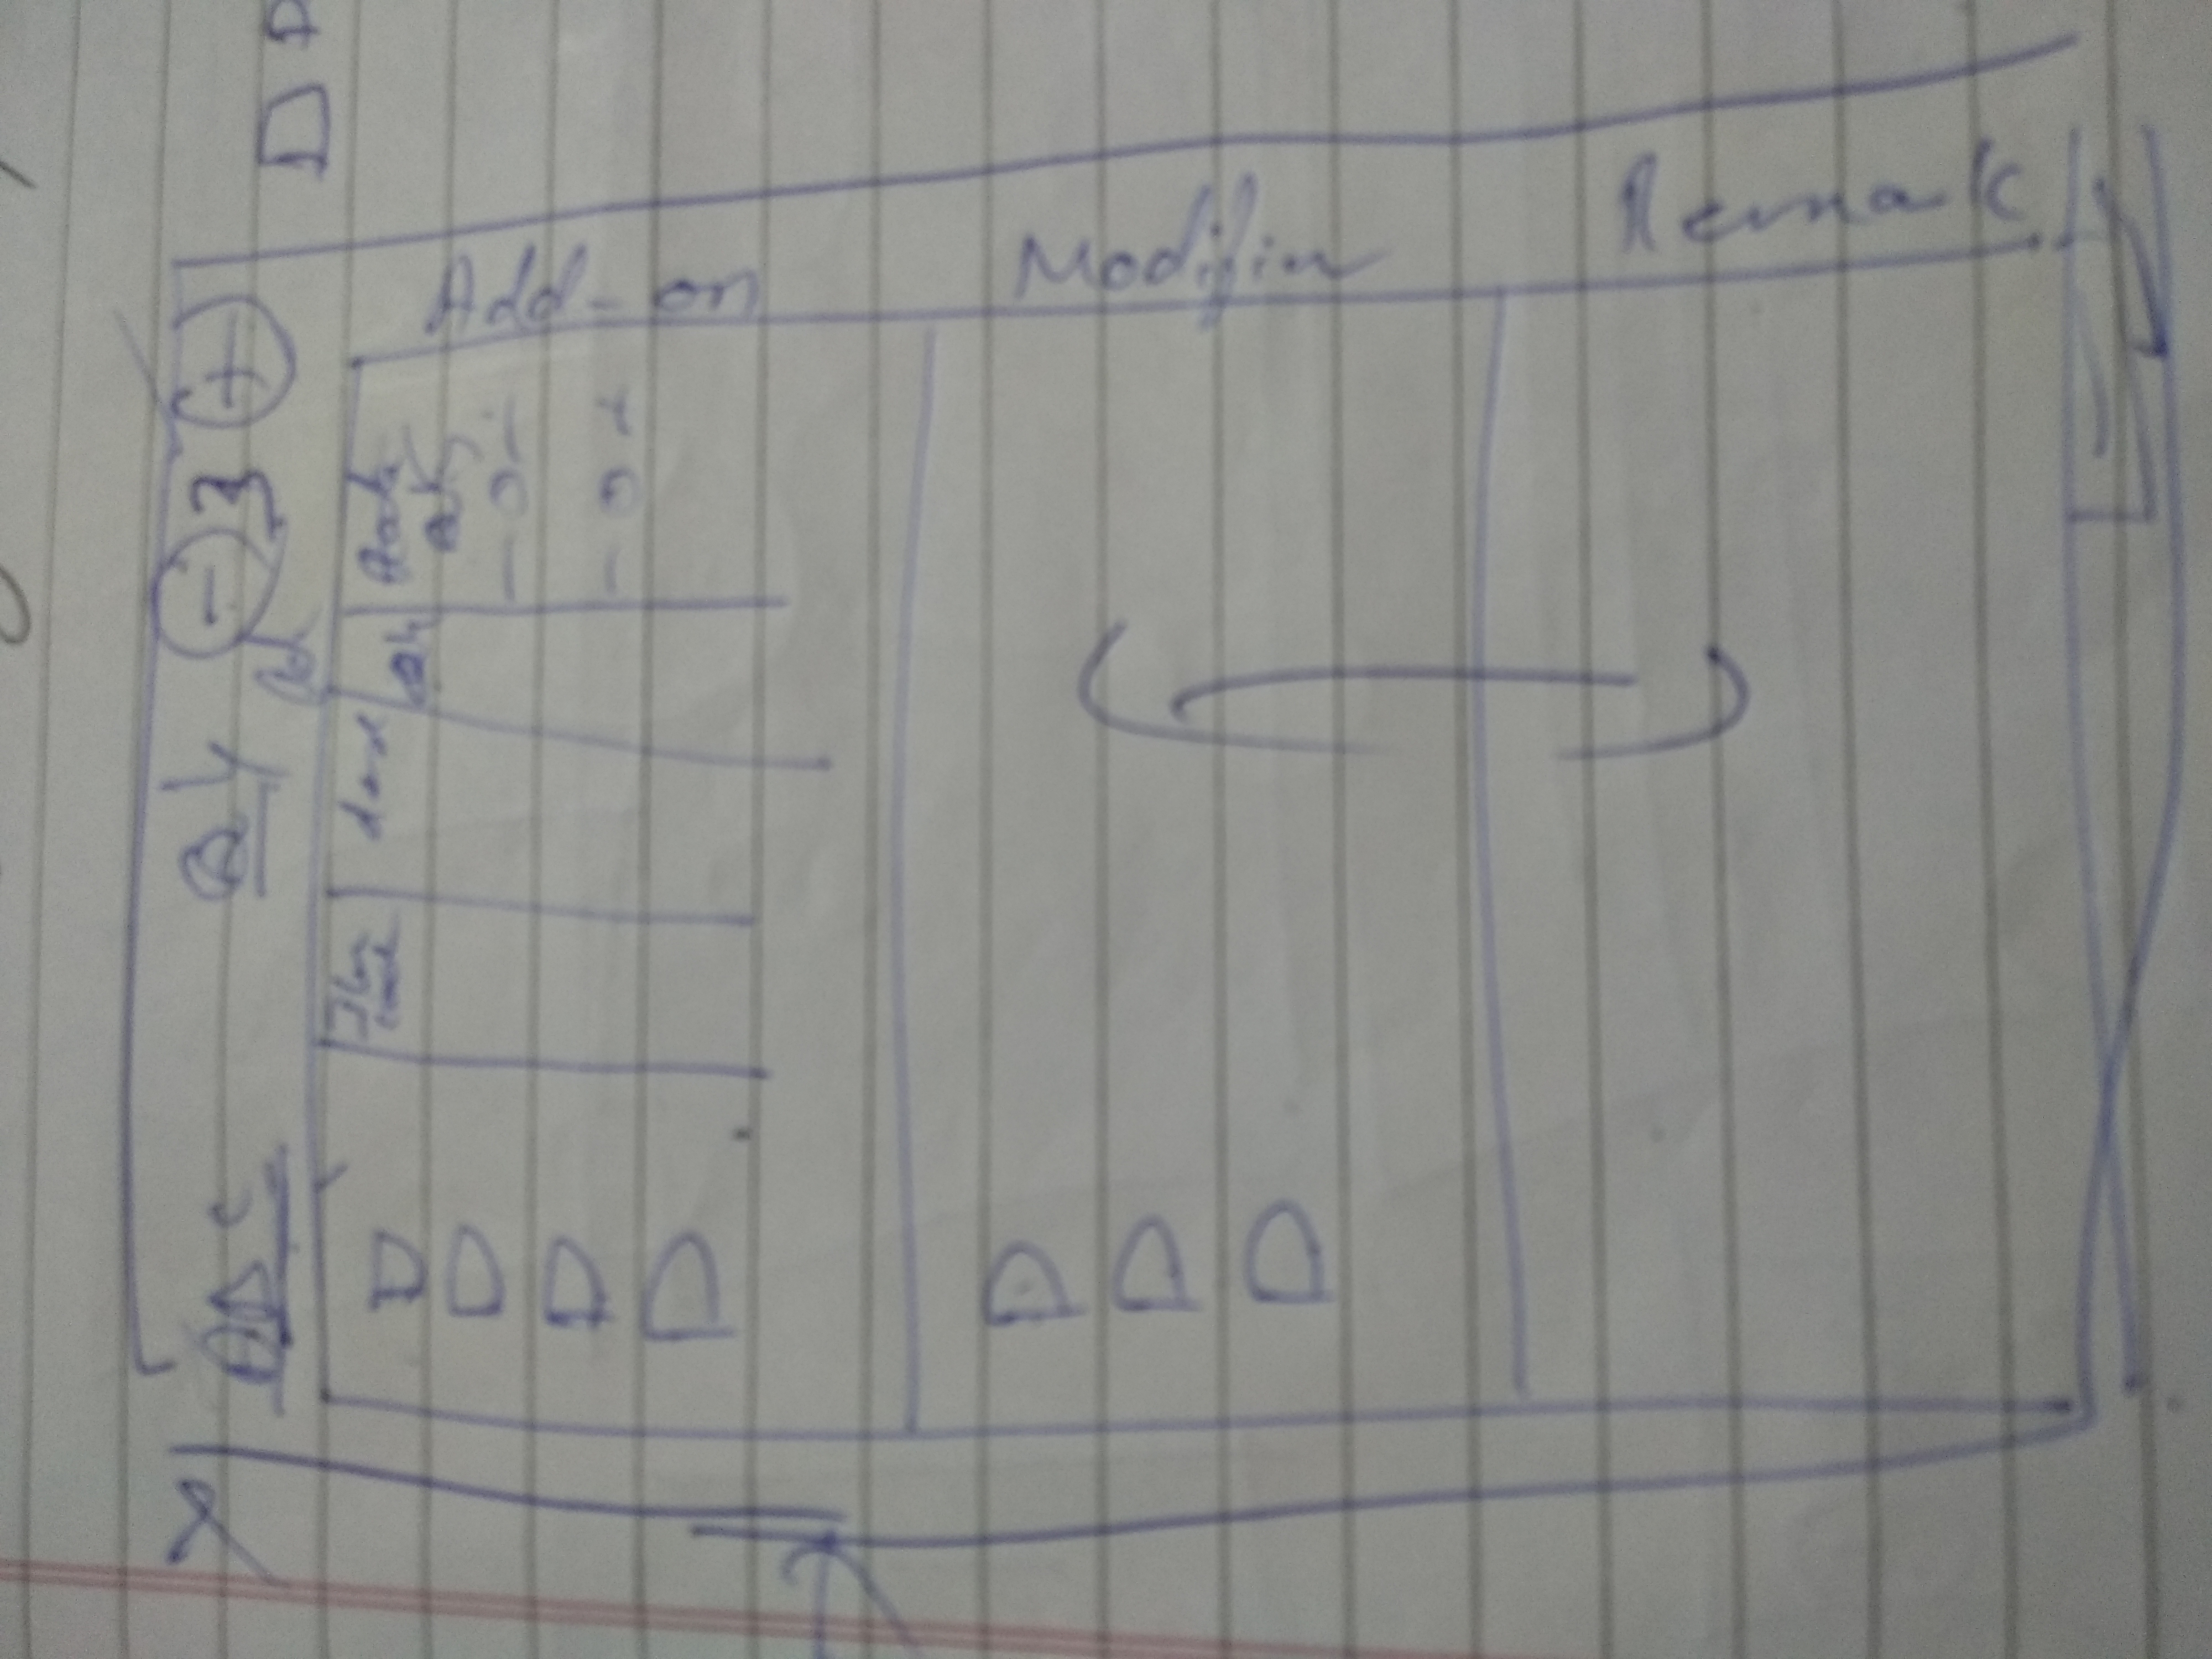 ABC Qty - 3 +
Item code desc Qty
Qty
- 0 +
- 0 +
Add-on
Modifier
Remark